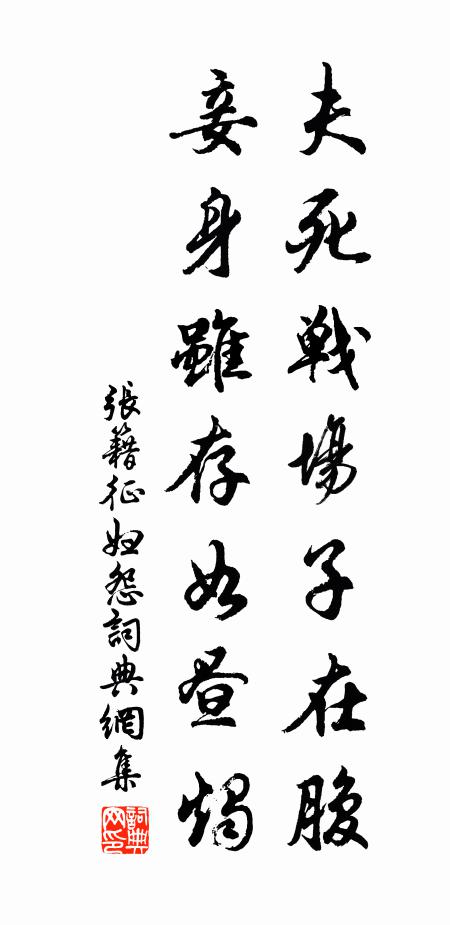 夫死戰場子在腹
妾身雖存如晝燭
張籍征婦怨詞典網集
詞典網印